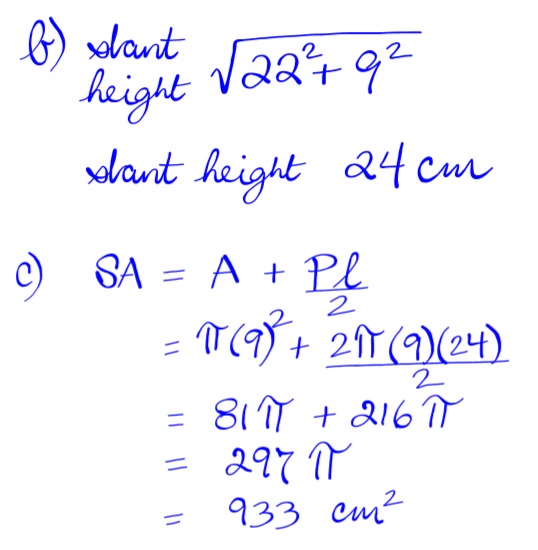 b) slant height √22²+9²
slant height 24 cm
c) SA = A + Pl/2
= π(9)² + 2π(9)(24)/2
= 81π + 216π
= 297π
= 933 cm²